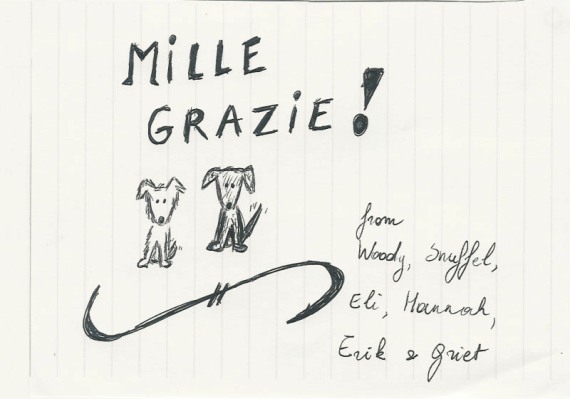 MiLLE
GRAZiE!
from
Woody, Snuffel,
Eli, Hannah,
Erik & Griet